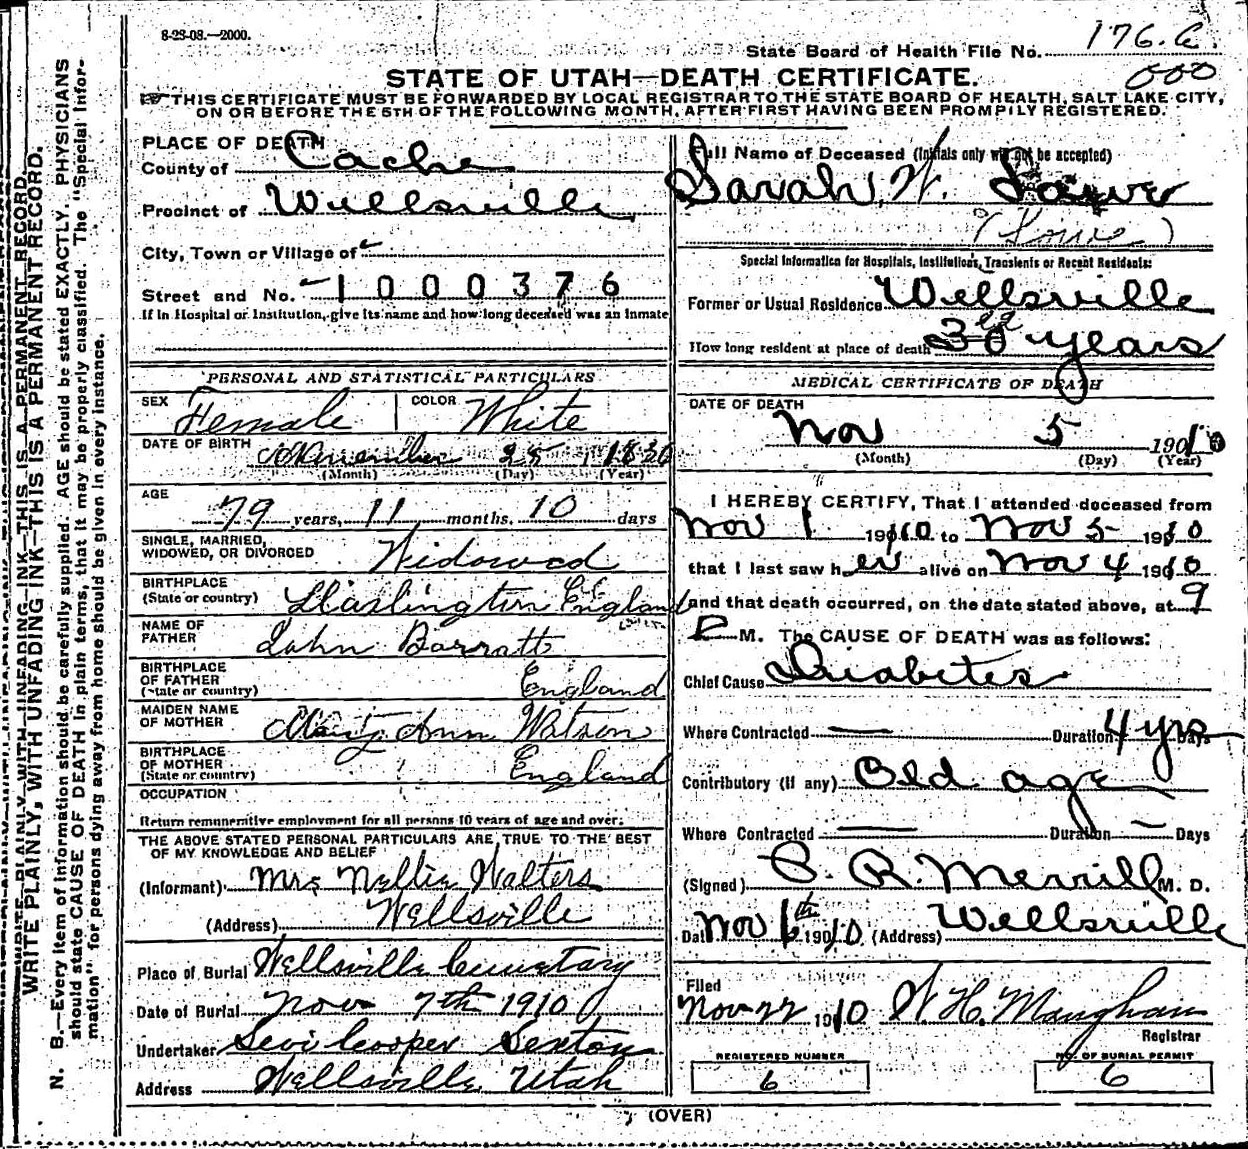 8-28-08.—2000.
State Board of Health File No. 176. C.
000
STATE OF UTAH—DEATH CERTIFICATE.
THIS CERTIFICATE MUST BE FORWARDED BY LOCAL REGISTRAR TO THE STATE BOARD OF HEALTH, SALT LAKE CITY,
ON OR BEFORE THE 5TH OF THE FOLLOWING MONTH, AFTER FIRST HAVING BEEN PROMPTLY REGISTERED.
N. B.—Every item of information should be carefully supplied. AGE should be stated EXACTLY. PHYSICIANS
should state CAUSE OF DEATH in plain terms, that it may be properly classified. The "Special Infor-
mation" for persons dying away from home should be given in every instance.
WRITE PLAINLY, WITH UNFADING INK—THIS IS A PERMANENT RECORD.
PLACE OF DEATH
County of Cache
Precinct of Wellsville
City, Town or Village of
Street and No. 1000376
If in Hospital or Institution, give its name and how long deceased was an inmate
PERSONAL AND STATISTICAL PARTICULARS
SEX Female COLOR White
DATE OF BIRTH November 25 1830
(Month) (Day) (Year)
AGE
79 years, 11 months, 10 days
SINGLE, MARRIED,
WIDOWED, OR DIVORCED Widowed
BIRTHPLACE
(State or country) England
NAME OF
FATHER John Barratt
BIRTHPLACE
OF FATHER
(State or country) England
MAIDEN NAME
OF MOTHER Mary Ann Watson
BIRTHPLACE
OF MOTHER
(State or country) England
OCCUPATION
Return remunerative employment for all persons 10 years of age and over.
THE ABOVE STATED PERSONAL PARTICULARS ARE TRUE TO THE BEST
OF MY KNOWLEDGE AND BELIEF
(Informant) Mrs Nellie Walters
(Address) Wellsville
Place of Burial Wellsville Cemetary
Date of Burial Nov 7th 1910
Undertaker Levi Cooper Sexton
Address Wellsville Utah
Full Name of Deceased (Initials only will not be accepted)
Sarah W.
Special Information for Hospitals, Institutions, Transients or Recent Residents:
Former or Usual Residence Wellsville
How long resident at place of death 30 years
MEDICAL CERTIFICATE OF DEATH
DATE OF DEATH
Nov 5 1910
(Month) (Day) (Year)
I HEREBY CERTIFY, That I attended deceased from
Nov 1 1910 to Nov 5 1910
that I last saw her alive on Nov 4 1910
and that death occurred, on the date stated above, at 9
P M. The CAUSE OF DEATH was as follows:
Chief Cause Diabetes
Where Contracted — Duration 4 yrs Days
Contributory (If any) Old age
Where Contracted — Duration — Days
(Signed) R. Merrill M. D.
Date Nov 6th 1910 (Address) Wellsville
Filed
Nov 22 1910 W H. Maughan
Registrar
REGISTERED NUMBER
6
NO. OF BURIAL PERMIT
6
(OVER)